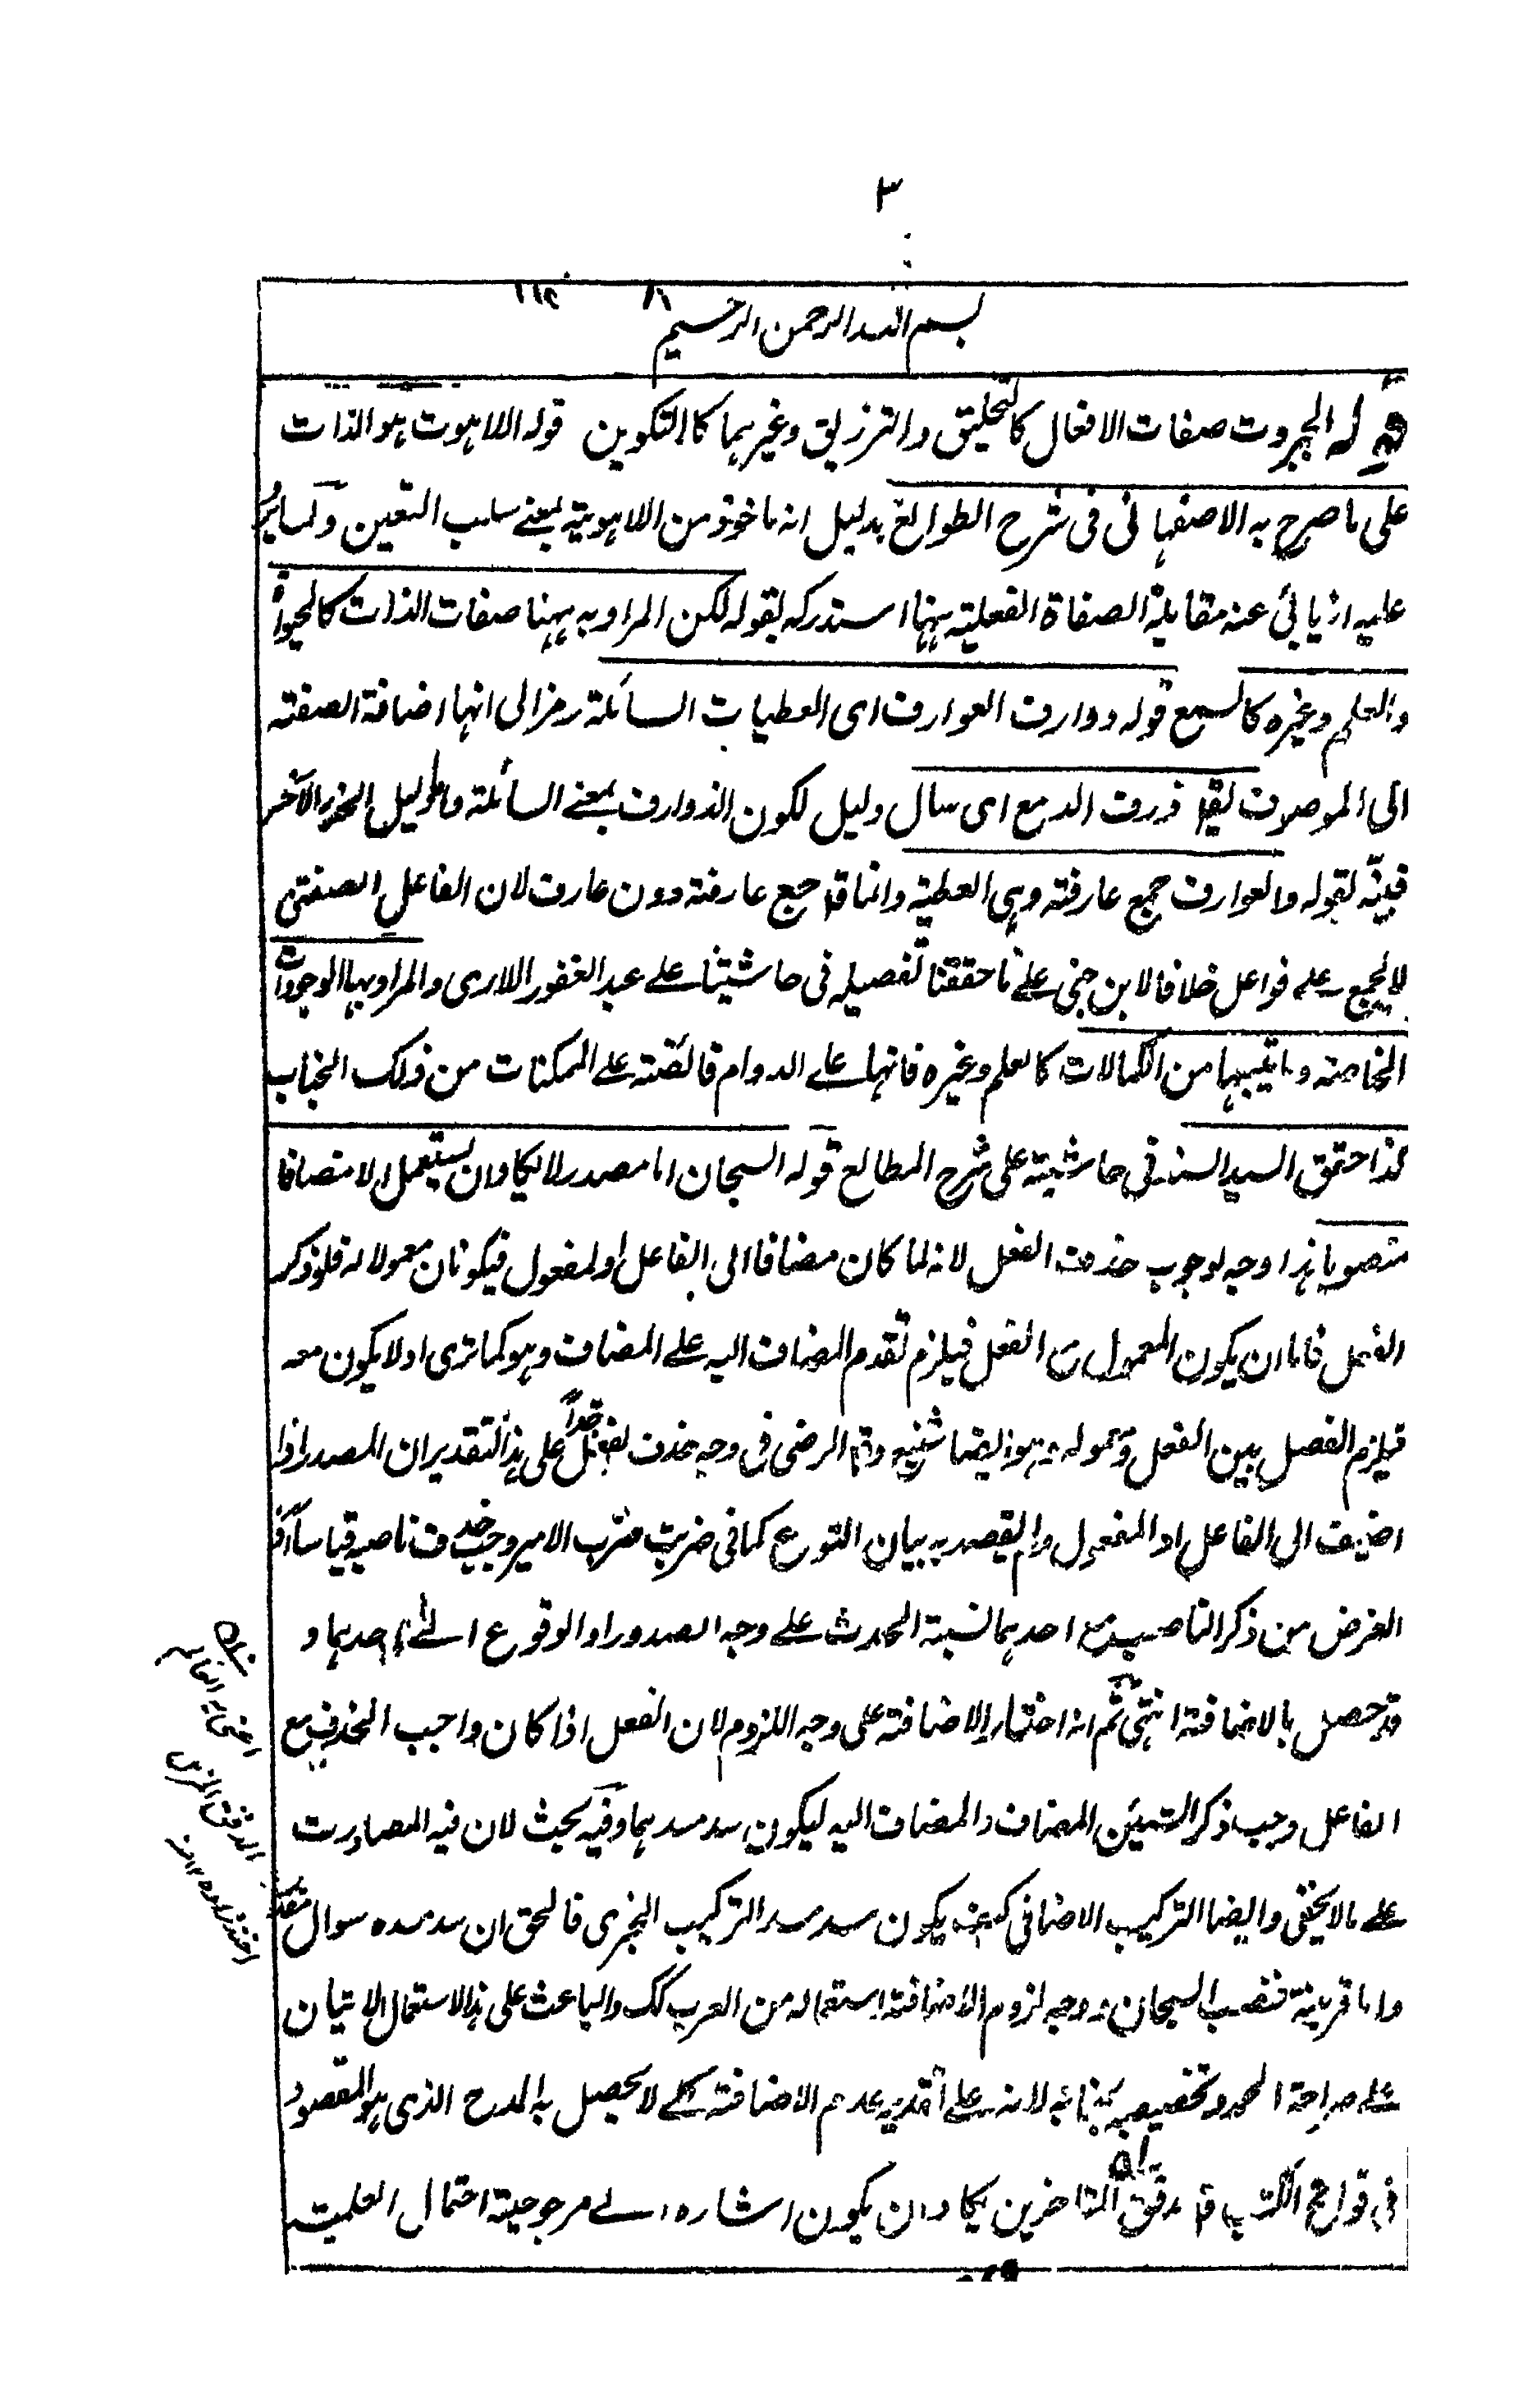 ٣
بسم الله الرحمن الرحيم
قوله الجبروت صفات الافعال كالتخليق والترزيق وغيرهما كالتكوين قوله اللاهوت هو الذات
على ما صرح به الاصفهانى فى شرح الطوالع بدليل انه ماخوذ من اللاهوية بمعنے سلب التعين ولما يرد
عليه اذ يابى عنه مقابلة الصفاة الفعلية ههنا استدركه بقوله لكن المراد به ههنا صفات الذات كالحيوة
والعلم وغيره كالسمع قوله ذوارف العوارف اى العطيات السائلة رمز الى انها اضافة الصفته
الى الموصوف يقا ذرف الدمع اى سال دليل لكون الذوارف بمعنے السائلة واما دليل الجزء الآخر
فبينّه بقوله والعوارف جمع عارفته وهى العطية وانما قا جمع عارفته دون عارف لان الفاعل الصفتى
لا يجمع علے فواعل خلافا لابن جنى علے ما حققنا تفصيله فى حاشيتنا علے عبد الغفور اللارى والمراد بها الوجودات
الخاصته وما يتبعها من الكمالات كالعلم وغيره فانها علے الدوام فائضته علے الممكنات من ذلك الجناب
كذا حقق السيد السند فى حاشيته على شرح المطالع قوله السبحان اما مصدر لا يكاد ان يستعمل الا مضافا
منصوبا هذا وجه لوجوب حذف الفعل لانه لما كان مضافا الى الفاعل او المفعول فيكونان معمولا له فلو ذكر
الفعل فاما ان يكون المعمول مع الفعل فيلزم تقدم المضاف اليه علے المضاف وهو كما ترى اولا يكون معه
فيلزم الفصل بين الفعل ومعموله وهو ايضا شنيع وقا الرضى فى وجه حذف الفعل على هذا التقدير ان المصدر اذا
اضيف الى الفاعل او المفعول ولم يقصد به بيان النوع كما فى ضربت ضرب الامير وجب حذف ناصبه قياسا اذ
الغرض من ذكر الناصب مع احدهما نسبة الحدث علے وجه الصدور او الوقوع الے احدهما و
قد حصل بالاضافة انتهى ثم انه اختار الاضافة على وجه اللزوم لان الفعل اذا كان واجب الحذف مع
الفاعل وجب ذكر الشيئين المضاف والمضاف اليه ليكون سد مسدهما وفيه بحث لان فيه المصادرت
علے ما لا يخفى وايضا التركيب الاضافى كيف يكون سد مسد التركيب الخبرى فالحق ان سد مسده سوال مقدر
واما قرينة فنصب السبحان ووجه لزوم الاضافة استعماله من العرب كك والباعث على هذا الاستعمال الاتيان
علے صراحة الحمد وتخصيصه بجنابه لانه علے تقدير عدم الاضافة كے لا يحصل به المدح الذى هو المقصود
فى فواتح الكتب قا مدقق المتاخرين يكاد ان يكون اشارة الے مرجوحية احتمال العلمية